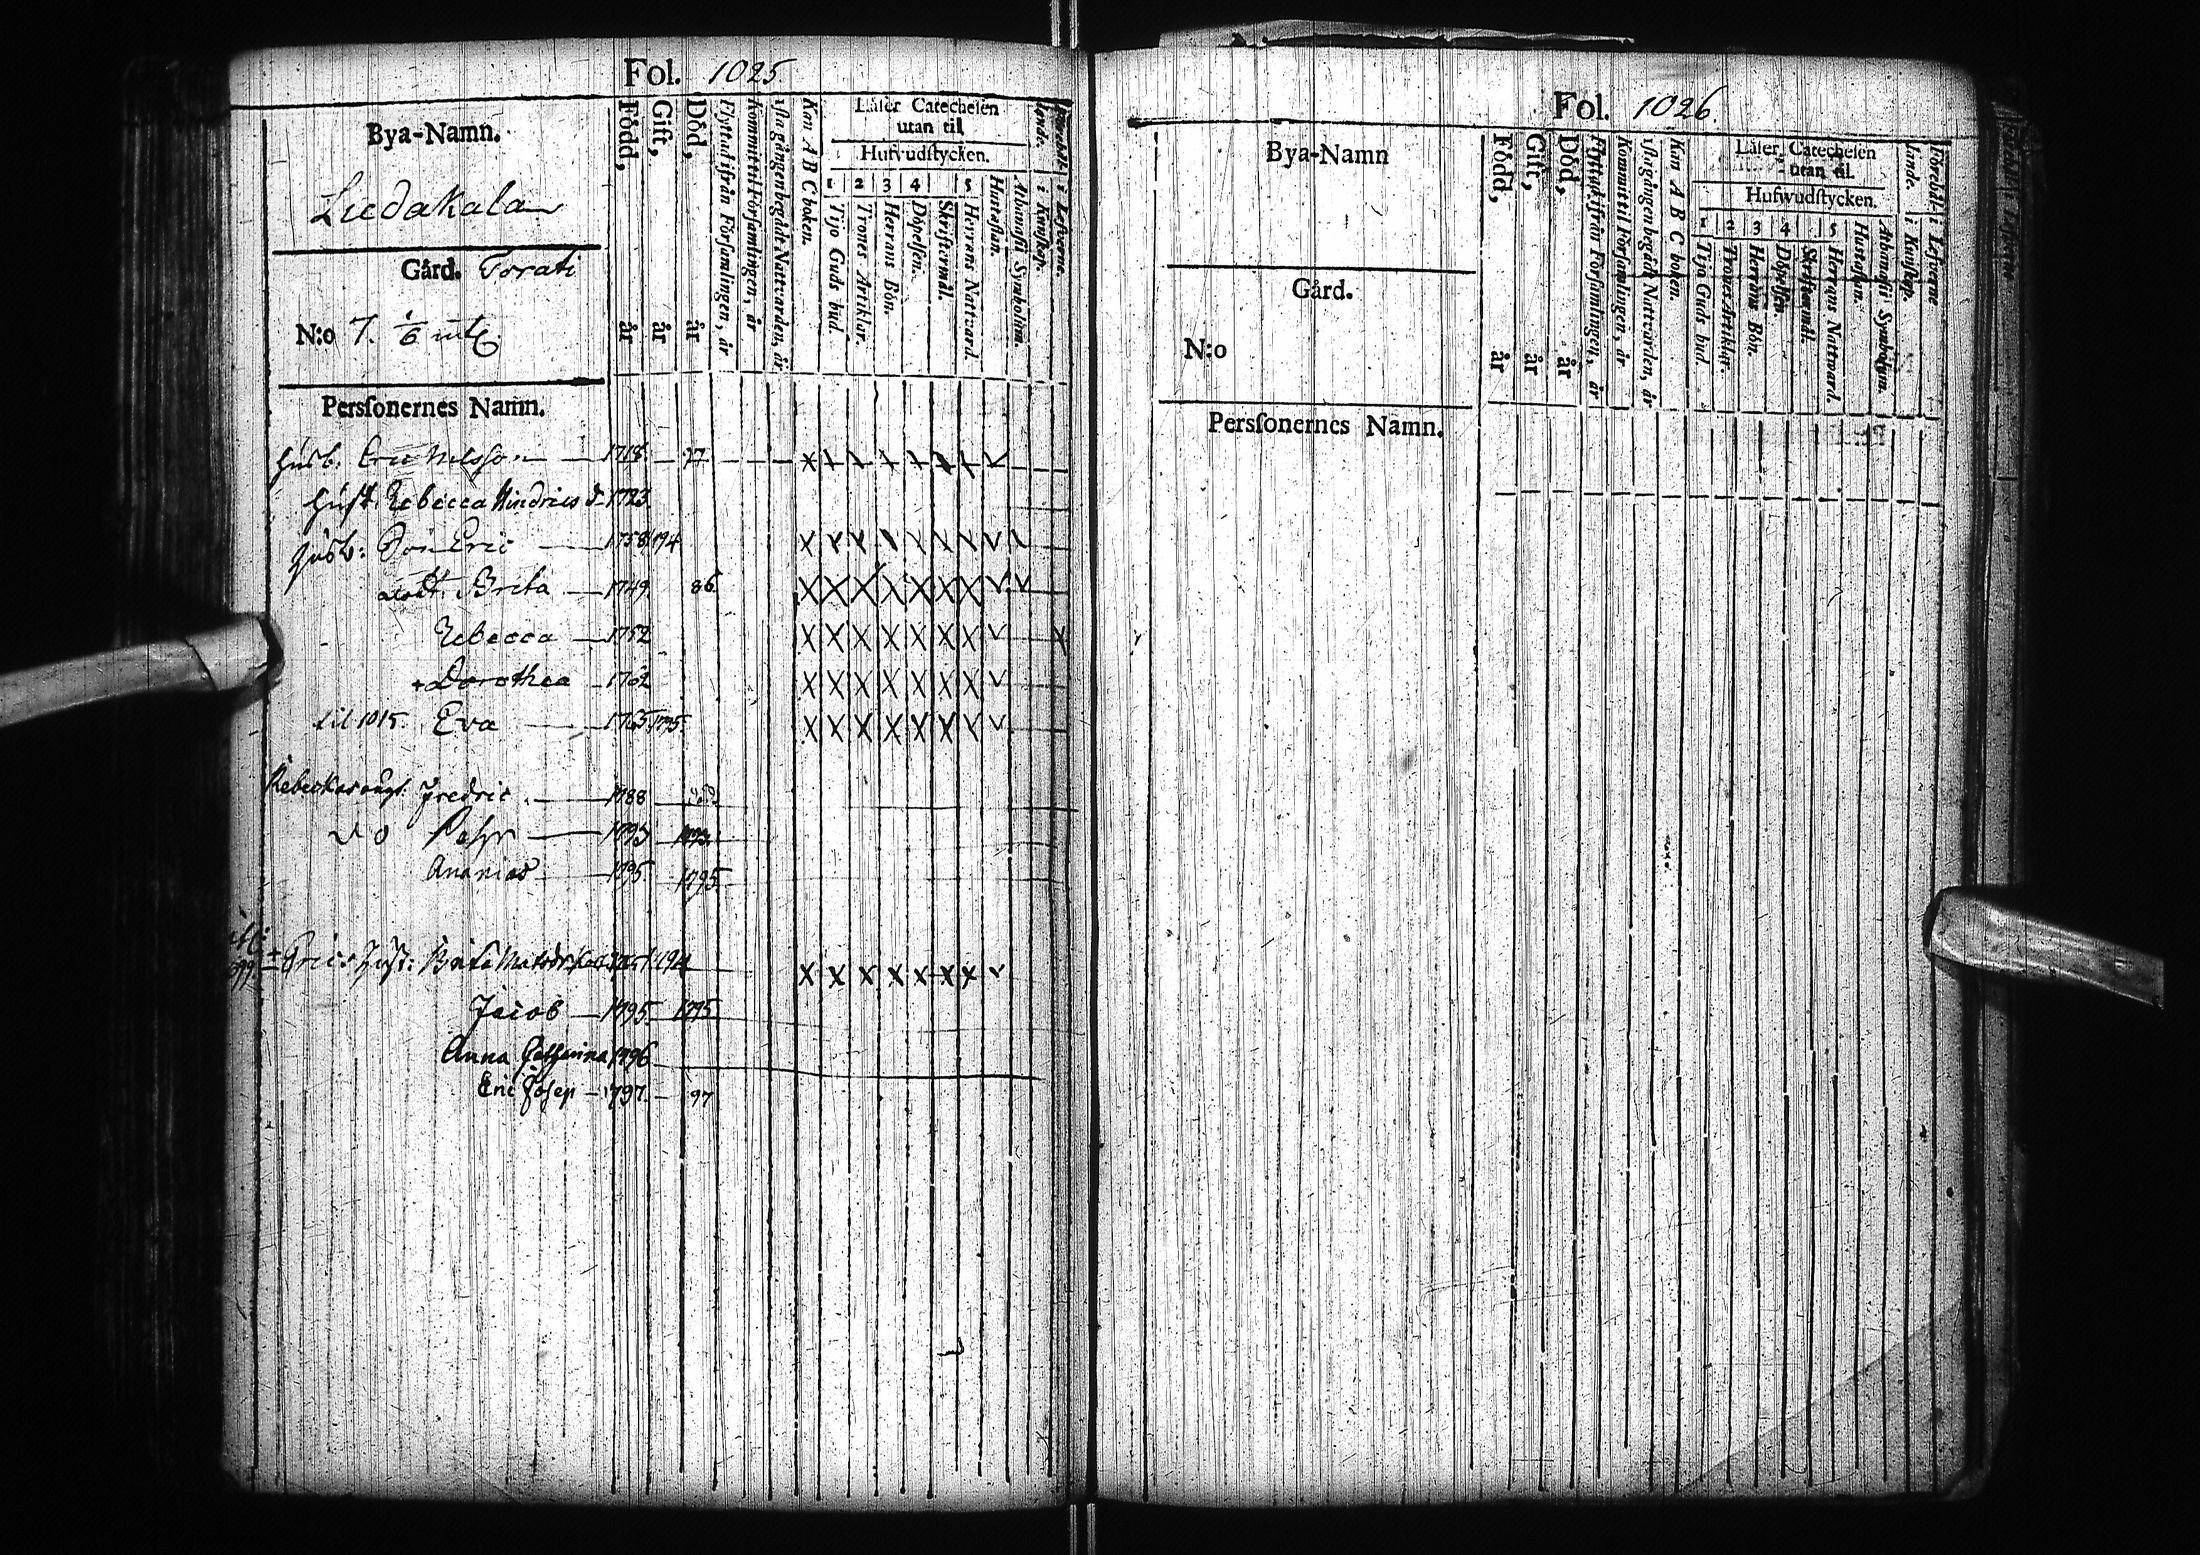 Fol. 1025
Bya-Namn.
Liedakala
Gård. Torati
N:o 7. 1/6 mtl
Personernes Namn.
Född, år
Gift, år
Död, år
Flyttad ifrån Församlingen, år
Kommit til Församlingen, år
1sta gången begådt Nattvarden, år
Kan A B C boken.
Läser Catechesen
utan til
Hufvudstycken.
1 2 3 4 5
Tijo Guds bud.
Trones Artiklar.
Herrans Bön.
Döpelsen.
Skriftermål.
Herrans Nattvard.
Hustaflan.
Athanasii Symbolum.
i Kunskap.
i Lefverne.
Husb. Eric Nilsson 1718. 77
Hust. Rebecca Hindrics d. 1723.
Husb: Son Eric 1758 194 X
dott. Brita 1749. 86 X X X X X X X
Rebecca 1752 X X X X X X X
+ Dorothea 1762 X X X X X X X
til 1015. Eva 1765 1795. X X X X X X X
Rebeckas Fredric 1788
do Pehr 1793 1793.
Ananias 1795 1795
Erics Hust: Brita X X X X X X X
Jacob 1795 1795
Anna Catharina 1796
Eric Josep 1797. 97
Fol. 1026
Bya-Namn
Gård.
N:o
Personernes Namn.
Född, år
Gift, år
Död, år
Flyttad ifrån Församlingen, år
Kommit til Församlingen, år
1sta gången begådt Nattvarden, år
Kan A B C boken.
Läser Catechesen
utan til.
Hufwudstycken.
1 2 3 4 5
Tijo Guds bud.
Trones Artiklar.
Herrans Bön.
Döpelsen
Skriftermål.
Herrans Nattvard.
Hustaflan.
Athanasii Symbolum.
Förebållande.
i Kunskap.
i Lefverne